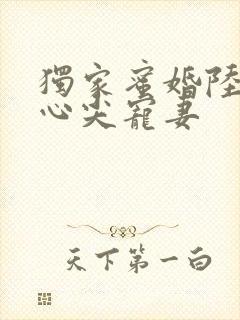 獨家蜜婚陸
心尖寵妻
天下第一白